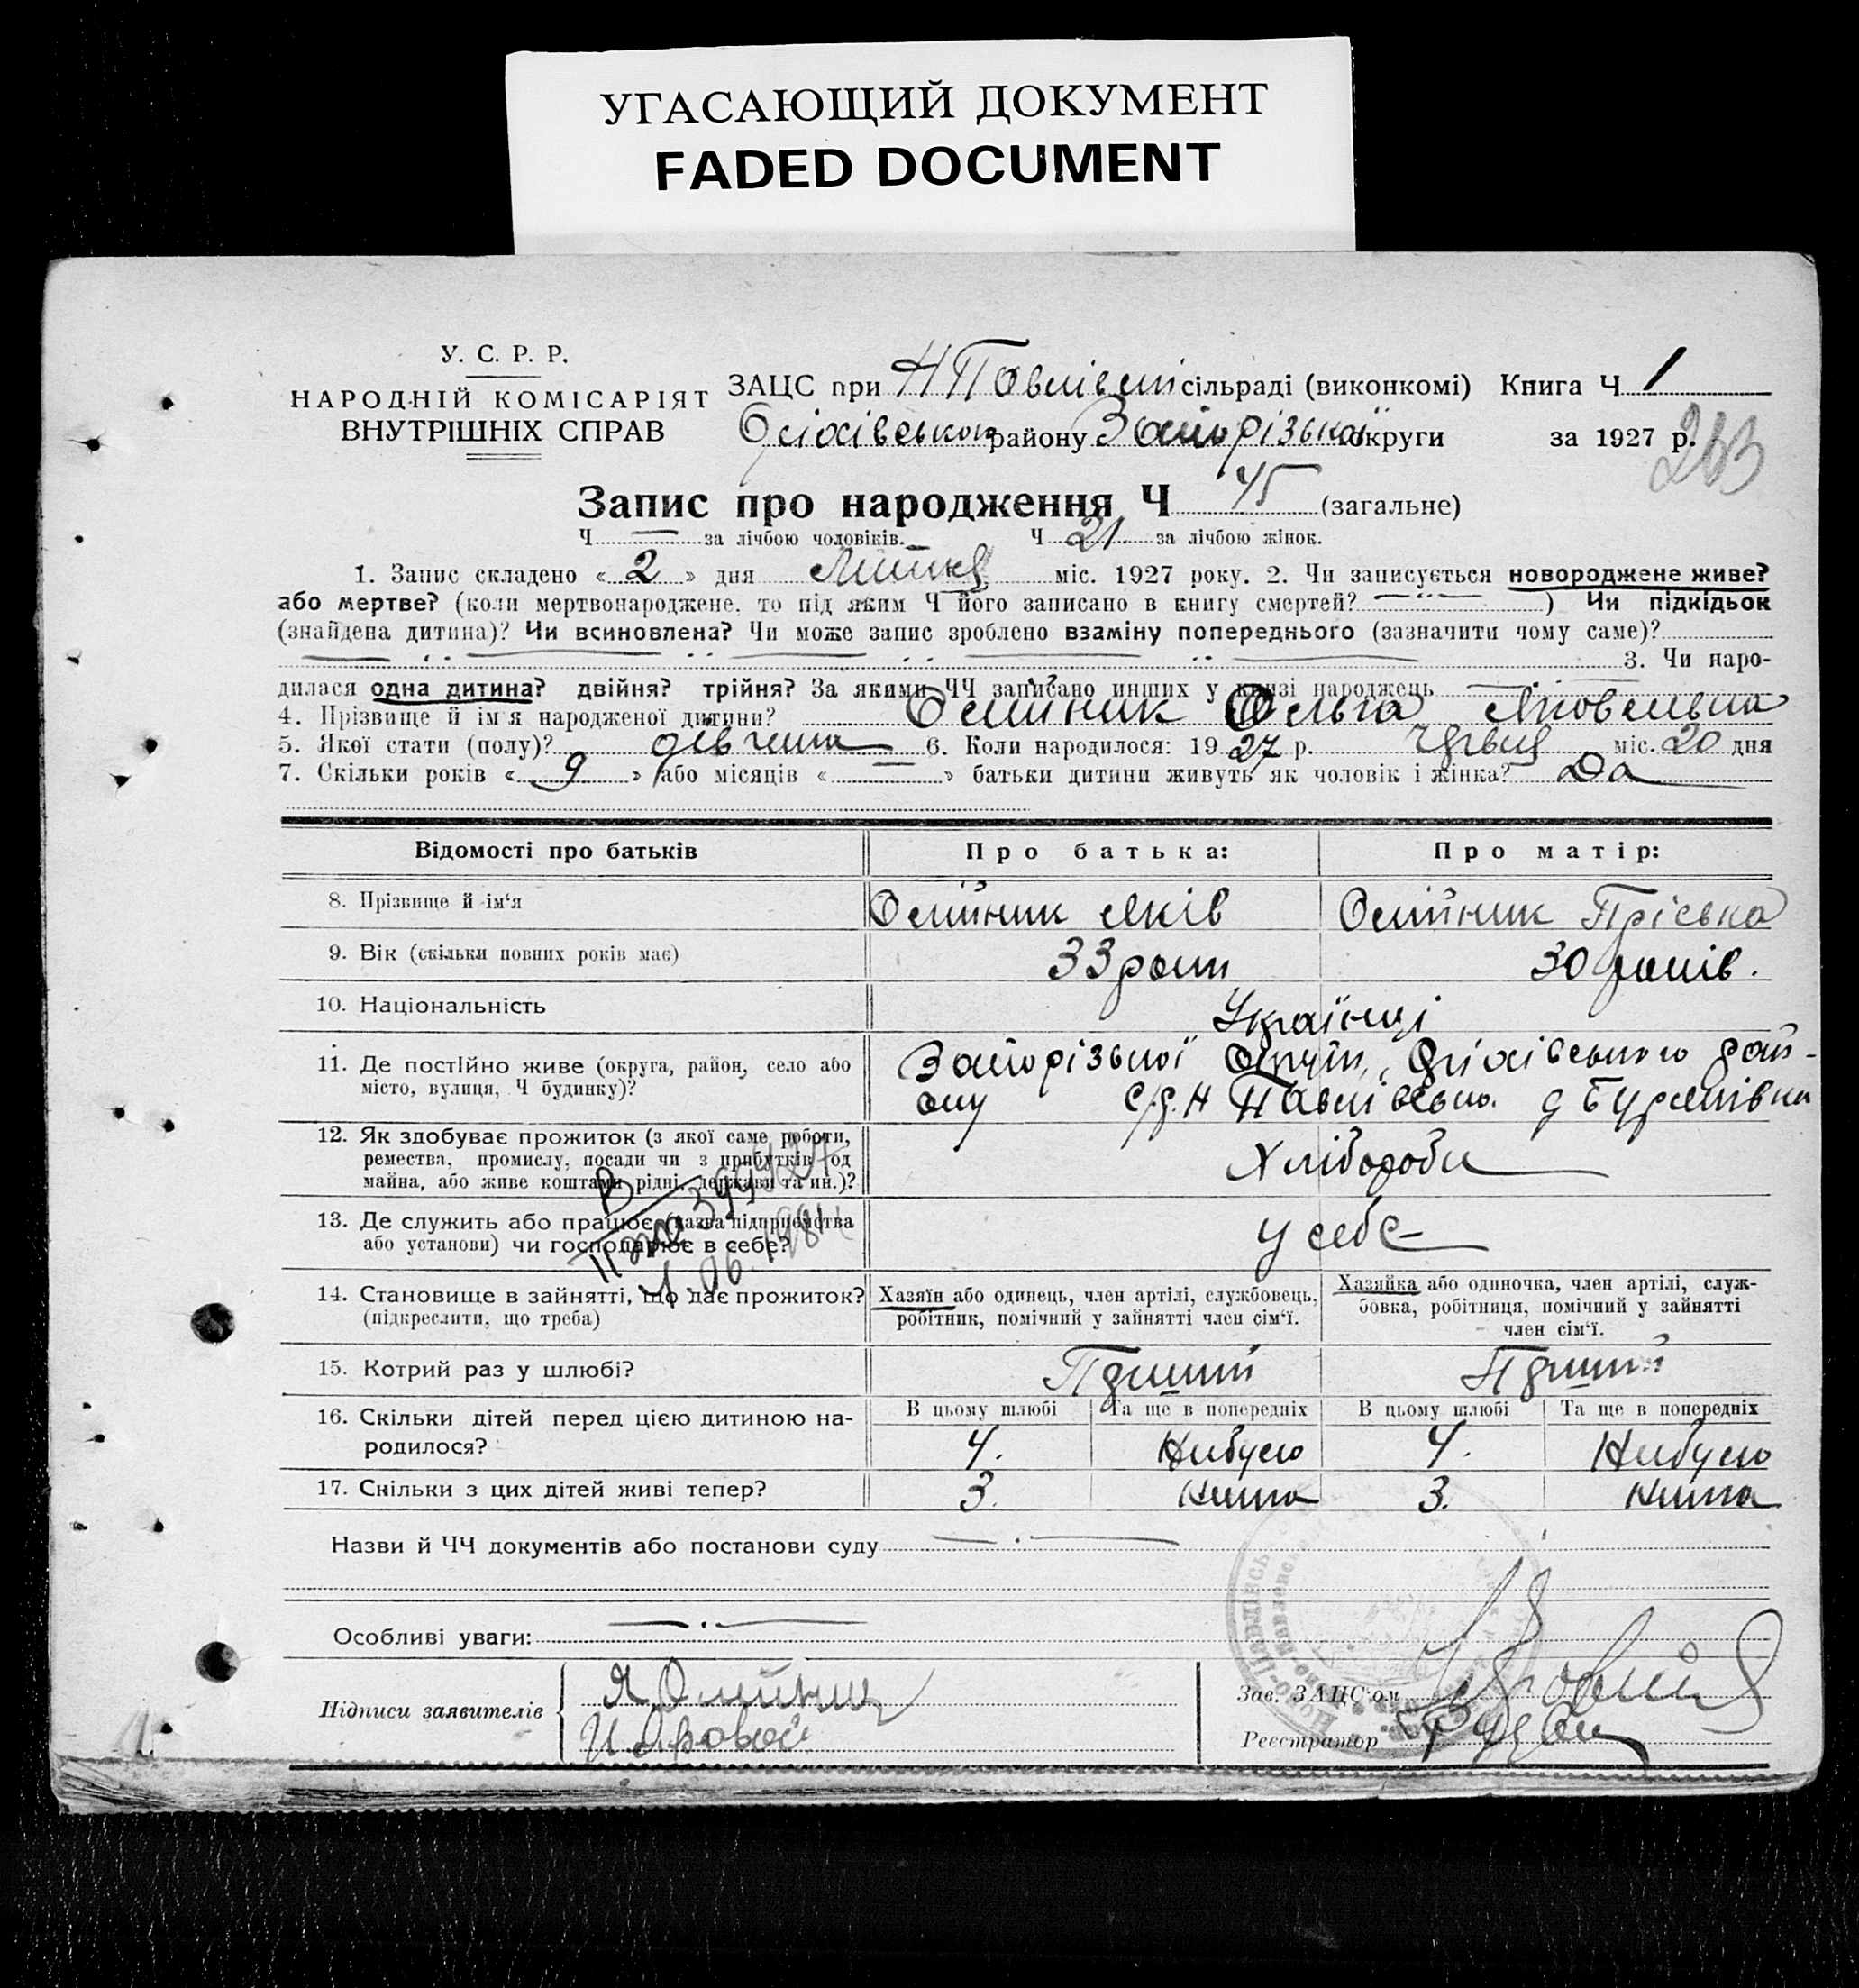 УГАСАЮЩИЙ ДОКУМЕНТ
FADED DOCUMENT
У. С. Р. Р.
НАРОДНІЙ КОМІСАРІЯТ
ВНУТРІШНІХ СПРАВ
ЗАЦС при Н Павлівській сільраді (виконкомі) Книга Ч 1
Оріхівського району Запорізької округи за 1927 р.
263
Запис про народження Ч 45 (загальне)
Ч — за лічбою чоловіків. Ч 21 за лічбою жінок.
1. Запис складено « 2 » дня Липня міс. 1927 року. 2. Чи записується новороджене живе?
або мертве? (коли мертвонароджене, то під яким Ч його записано в книгу смертей? ) Чи підкідьок
(знайдена дитина)? Чи всиновлена? Чи може запис зроблено взаміну попереднього (зазначити чому саме)?
3. Чи наро-
дилася одна дитина? двійня? трійня? За якими ЧЧ записано инших у книзі народжень
4. Прізвище й імя народженої дитини? Олійник Ольга Яковельна
5. Якої стати (полу)? дівчина 6. Коли народилося: 1927 р. Червця міс. 20 дня
7. Скільки років « 9 » або місяців « — » батьки дитини живуть як чоловік і жінка? Да
Відомості про батьків Про батька: Про матір:
8. Прізвище й ім‘я Олійник Яків Олійник Пріська
9. Вік (скільки повних років має) 33 роки 30 років.
10. Національність Українці
11. Де постійно живе (округа, район, село або Запорізької Округи, Оріхівського рай-
місто, вулиця, Ч будинку)? ону с/р. Н Павлівсько.
12. Як здобуває прожиток (з якої саме роботи,
ремества, промислу, посади чи з прибутків од Хлібороби
майна, або живе коштами рідні, держави та ин.)?
13. Де служить або працює (назва підприємства
або установи) чи господарює в себе? у себе
14. Становище в зайнятті, що дає прожиток? Хазяїн або одинець, член артілі, службовець, Хазяйка або одиночка, член артілі, служ-
(підкреслити, що треба) робітник, помічний у зайнятті член сім‘ї. бовка, робітниця, помічний у зайнятті
член сім‘ї.
15. Котрий раз у шлюбі? Перший Перший
16. Скільки дітей перед цією дитиною на- В цьому шлюбі Та ще в попередніх В цьому шлюбі Та ще в попередніх
родилося? 4. Небуло 4. Небуло
17. Скільки з цих дітей живі тепер? 3. Нема 3. Нема
Назви й ЧЧ документів або постанови суду
Особливі уваги:
Підписи заявителів Я Олійник
И Яровой
Зав. ЗАЦС‘ом
Реєстратор